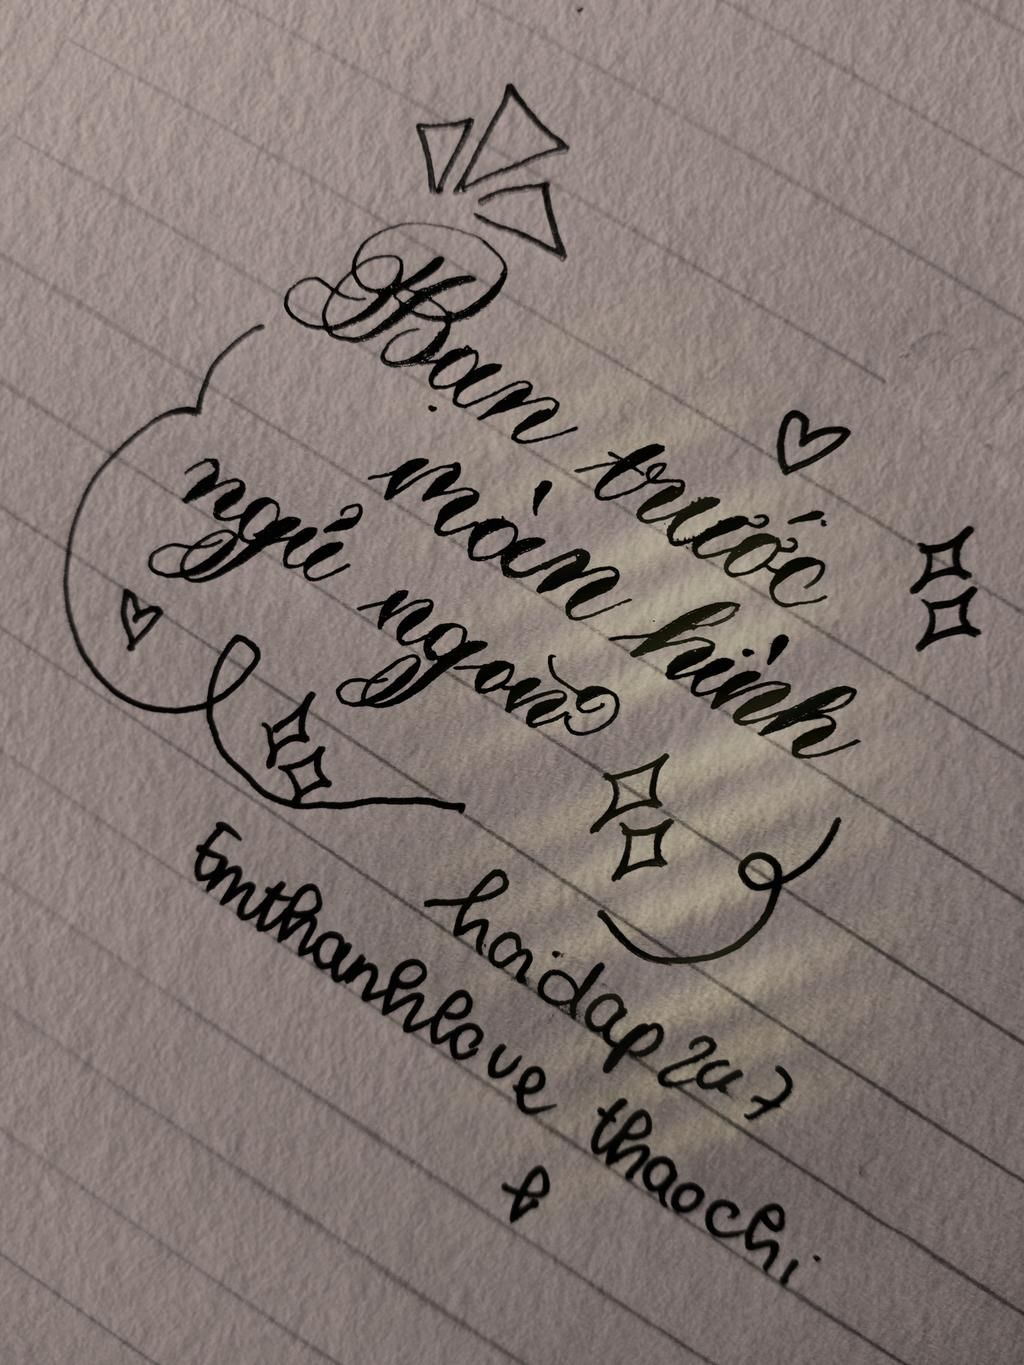 Bạn trước
màn hình
ngủ ngon
hoidap247
Emthanhlove thaochi